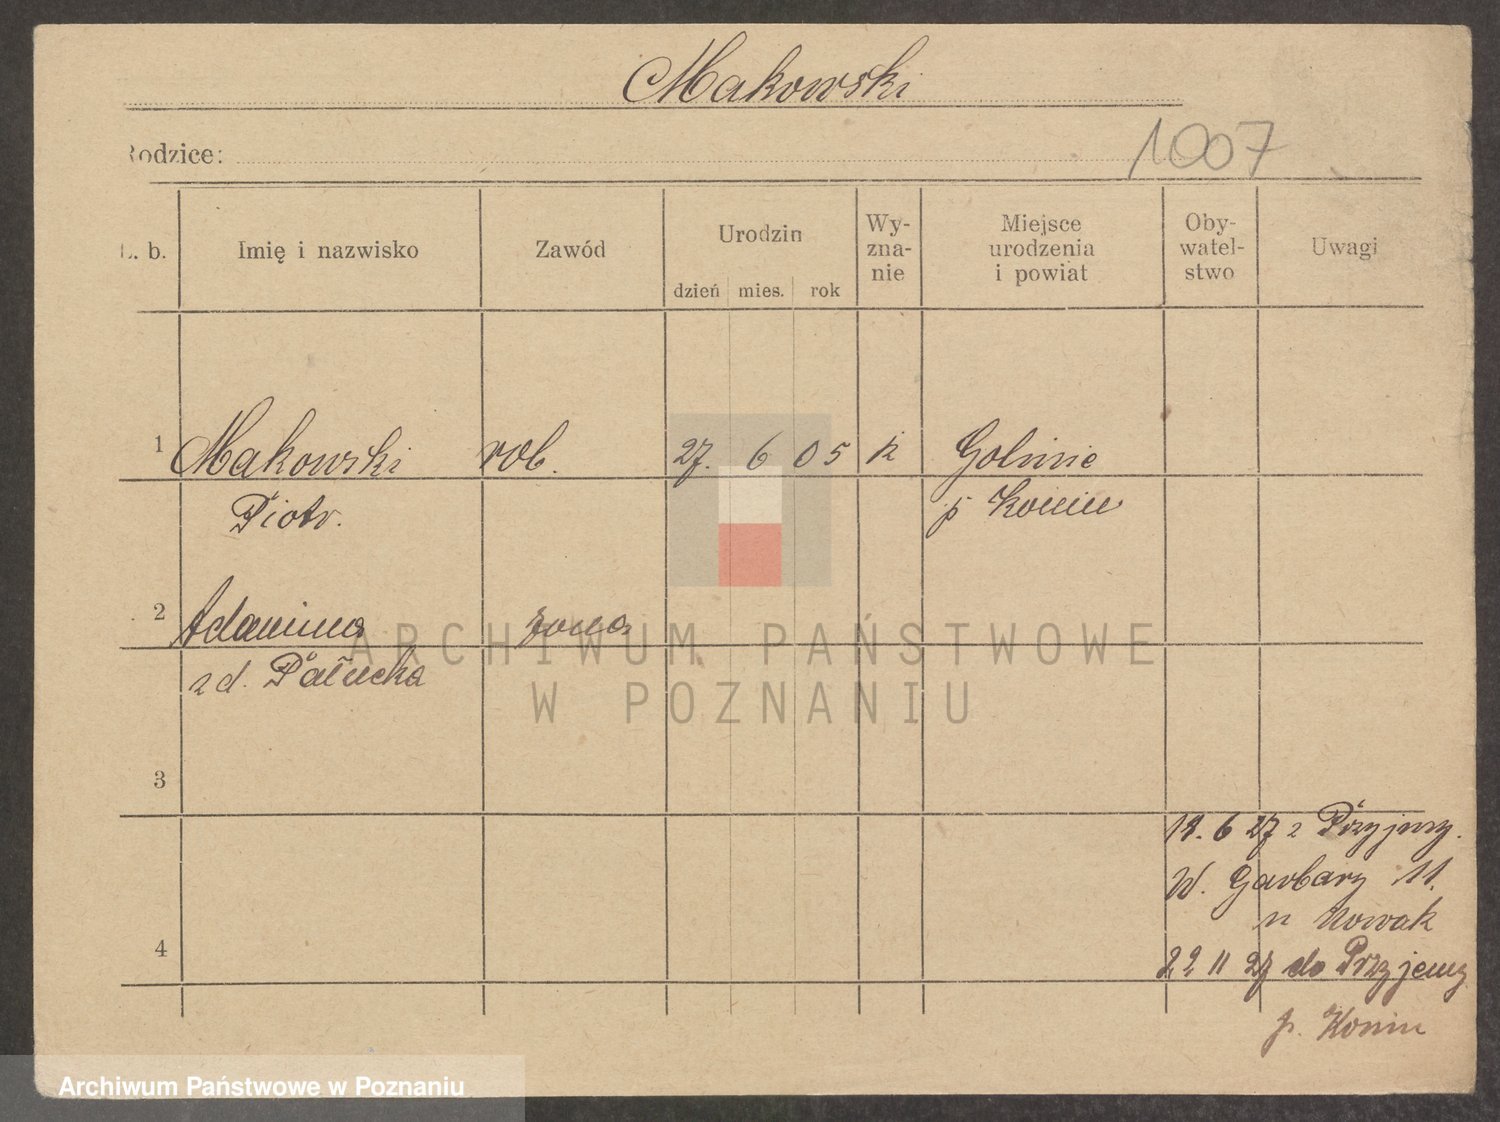 Makowski
Rodzice:
1007
L. b.
Imię i nazwisko
Zawód
Urodzin
dzień mies. rok
Wy-
zna-
nie
Miejsce
urodzenia
i powiat
Oby-
watel-
stwo
Uwagi
1 Makowski rob. 27. 6 05 k Golinie
Piotr. p Konin
2 Adamina żona
z d. Pałucka
3
4
19. 6 27 z Przyjmy.
W. Garbary 11.
u Nowak
22 11 27 do Przyjemy
p. Konin
ARCHIWUM PAŃSTWOWE
W POZNANIU
Archiwum Państwowe w Poznaniu